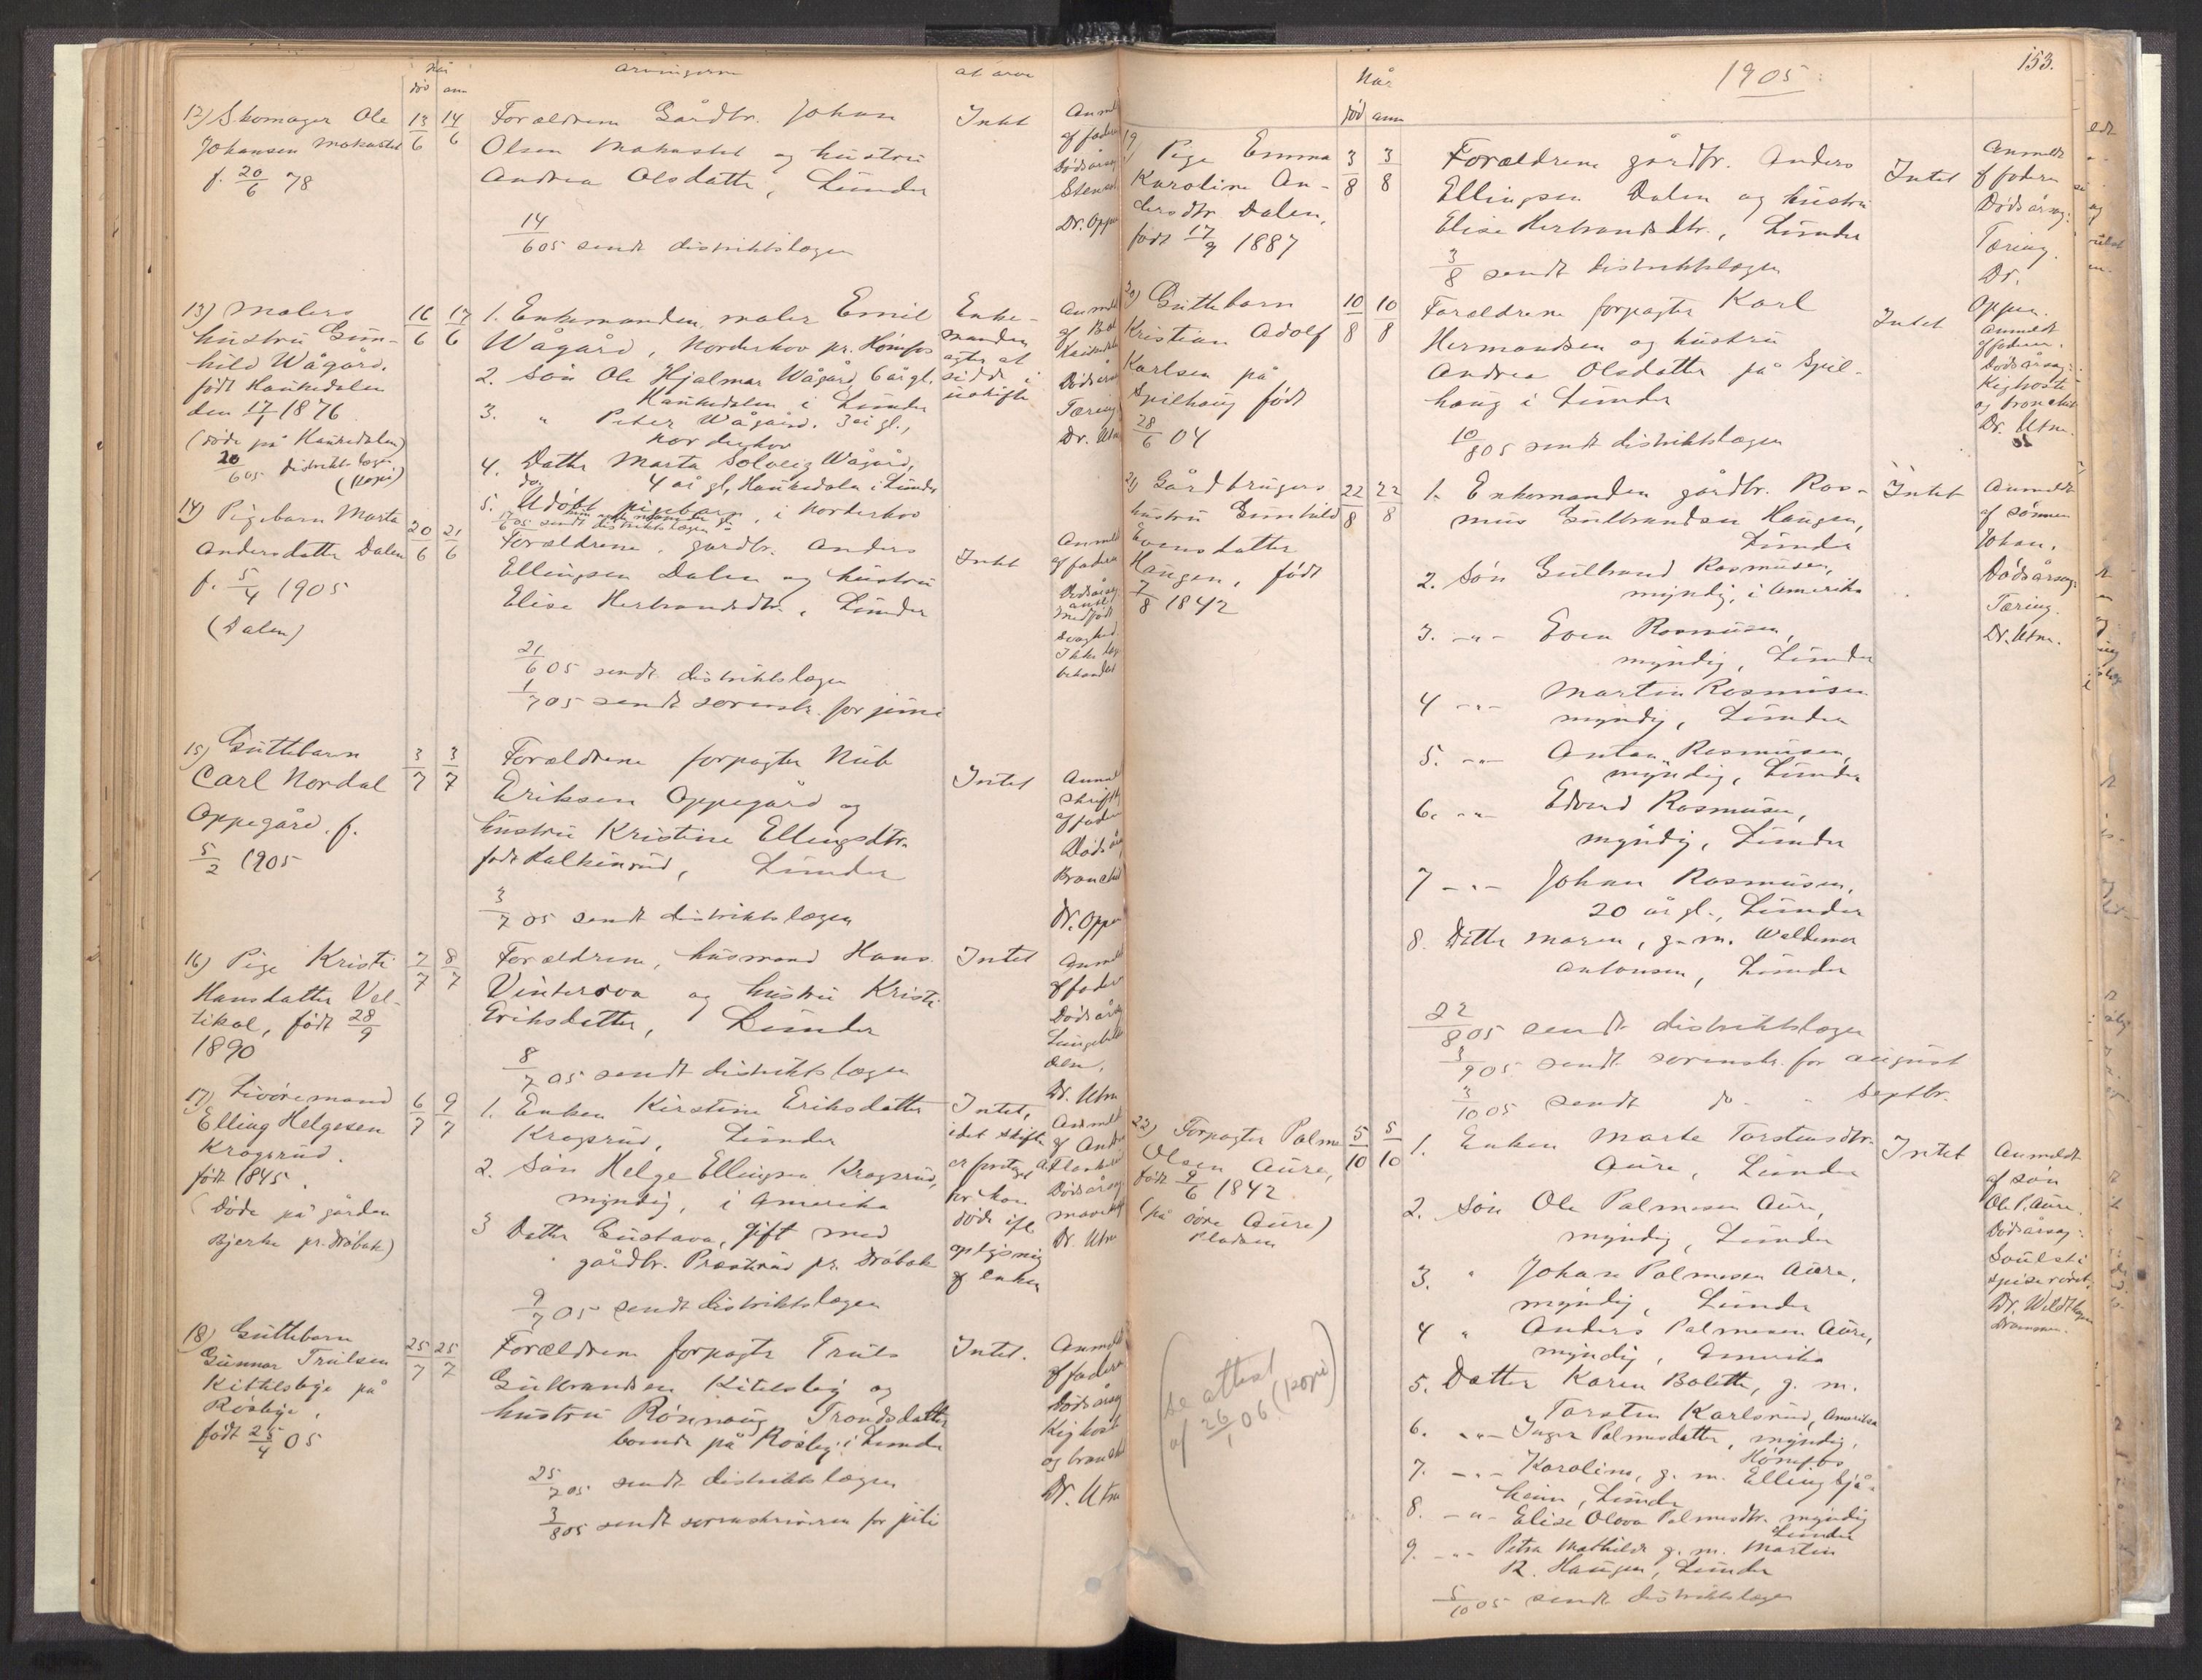 Når
død anm
arvingerne
at arve
12) Skomager Ole
Johansen Mokastet
f. 20/6 78
13/6 14/6
Forældrene Gårdbr. Johan
Olsen Mokastet og hustru
Andrea Olsdatter, Lunder
Intet
14/6 05 sendt distriktslægen
Anmeldt
af faderen
Dødsårsag
Dr. Oppen
13) Malers
hustru Gun-
hild Wågård.
født Haukedalen
den 17/1 1876
(døde på Haukedalen)
20/6 05 distriktslægen
(Kopi)
16/6 17/6
1. Enkemanden, maler Emil
Wågård, Norderhov pr. Hønefos
2. Søn Ole Hjalmar Wågård, 6 år gl.
Haukedalen i Lunder
3. " Peter Wågård. 3 år gl.,
Norderhov
4. Datter Marta Solveig Wågård,
4 år gl, Haukedalen i Lunder
5. do. Udøbt pigebarn, i Norderhov
17/6 05 sendt distriktslægen
Enke-
manden
agter at
sidde i
uskifte
Dødsårsag
Tæring
Dr. Utne
14) Pigebarn Marta
Andersdatter Dalen
f. 5/4 1905
(Dalen)
20/6 21/6
Forældrene, gårdbr. Anders
Ellingsen Dalen og hustru
Elise Herbrandsdtr., Lunder
Intet
Anmeldt
af faderen
Dødsårsag
medfødt
svaghed
Ikke læge
behandlet
21/6 05 sendt distriktslægen
1/7 05 sendt sorenskr. for juni
15) Guttebarn
Carl Nordal
Oppegård, f.
5/2 1905
3/7 3/7
Forældrene forpagter Nub
Eriksen Oppegård og
hustru Kristine Ellingsdtr.
født Kalkinrud, Lunder
Intet
Anmeldt
skriftlig
af faderen
Dødsårsag
Dr. Oppen
3/7 05 sendt distriktslægen
16) Pige Kristi
Hansdatter Vel-
tikol, født 28/9
1890
7/7 8/7
Forældrene, husmand Hans
Vintersva og hustru Kristi
Eriksdatter, Lunder
Intet
Anmeldt
af faderen
Dødsårsag
8/7 05 sendt distriktslægen
Dr. Utne
17) Livøremand
Elling Helgesen
Krogsrud.
født 1845.
(døde på gården
Bjerke pr. Drøbak)
6/7 9/7
1. Enken Kirstine Eriksdatter
Krogsrud, Lunder
2. Søn Helge Ellingsen Krogsrud,
myndig, i Amerika
3 Datter Gustava, gift med
gårdbr. Præstrud pr. Drøbak
Intet,
idet skifte
er foretaget
før han
døde ifl
oplysning
af enken
Dødsårsag
Dr. Utne
9/7 05 sendt distriktslægen
18) Guttebarn
Gunnar Trulsen
Kittelsbye på
Rosbye,
født 25/4 05
25/7 25/7
Forældrene forpagter Truls
Gulbrandsen Kitelsby og
hustru Rønnaug Trondsdatter
boende på Rosby i Lunder
Intet.
Anmeldt
af faderen
Dødsårsag
Kighoste
Dr. Utne
25/7 05 sendt distriktslægen
3/8 05 sendt sorenskriveren for juli
1905
153.
Når
død anm
19) Pige Emma
Karoline An-
dersdtr. Dalen,
født 17/9 1887
3/8 3/8
Forældrene gårdbr. Anders
Ellingsen Dalen og hustru
Elise Herbrandsdtr., Lunder
3/8 sendt distriktslægen
Intet
Anmeldt
af faderen
Dødsårsag:
Tæring.
Dr.
Oppen.
20) Guttebarn
Kristian Adolf
Karlsen på
Spilhaug født
28/6 04
10/8 10/8
Forældrene forpagter Karl
Hermandsen og hustru
Andrea Olsdatter på Spil-
haug i Lunder
10/8 05 sendt distriktslægen
Intet
Anmeldt
af faderen.
Dødsårsag:
Kighoste
og bronchit
Dr. Utne.
21) Gårdbrugers
hustru Gunhild
Evensdatter
Haugen, født
7/8 1842
22/8 22/8
1. Enkemanden gårdbr. Ras-
mus Gulbrandsen Haugen,
Lunder
2. Søn Gulbrand Rasmussen,
myndig, i Amerika
3. -"- Even Rasmussen,
myndig, Lunder
4 -"- Martin Rasmussen
myndig, Lunder
5. -"- Anton Rasmussen,
myndig, Lunder
6. -"- Edvard Rasmussen,
myndig, Lunder
7 -"- Johan Rasmussen,
20 år gl., Lunder
8. Datter Maren, g. m. Waldemar
Antonsen, Lunder
Intet
Anmeldt
af sønnen
Johan.
Dødsårsag:
Tæring.
Dr. Utne.
22/8 05 sendt distriktslægen
3/9 05 sendt sorenskr. for august
3/10 05 sendt do - " Septbr.
22) Forpagter Palme
Olsen Aure,
født 9/6 1842
(på øvre Aure)
Pladsen
5/10 5/10
1. Enken Marte Torstensdtr.
Aure, Lunder
2. Søn Ole Palmesen Aure,
myndig, Lunder
3. " Johan Palmesen Aure,
myndig, Lunder
4 " Anders Palmesen Aure,
myndig, Amerika
5. Datter Karen Bolette, g. m.
Torsten Karlsrud, Amerika
6. -"- Inger Palmesdatter, myndig,
Hønefos
7. -"- Karoline, g. m. Elling Bjå-
heim, Lunder
8. -"- Elise Olava Palmesdtr. myndig
Lunder
9. -"- Petra Mathilde g. m. Martin
R. Haugen, Lunder
5/10 05 sendt distriktslægen
Intet
Anmeldt
af søn
Ole P. Aure.
Dødsårsag:
Dr. Weldthagen
Drammen.
(se attest
af 26/1 06 (kopi)